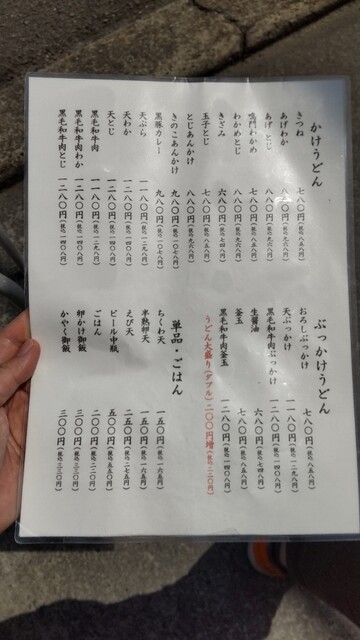 かけうどん
きつね 七八〇円(税込八五八円)
あげわか 八八〇円(税込九六八円)
あげとじ 八八〇円(税込九六八円)
鳴門わかめ 七八〇円(税込八五八円)
わかめとじ 八八〇円(税込九六八円)
きざみ 六八〇円(税込七四八円)
玉子とじ 七八〇円(税込八五八円)
とじあんかけ 八八〇円(税込九六八円)
きのこあんかけ 九八〇円(税込一〇七八円)
黒豚カレー 九八〇円(税込一〇七八円)
天ぷら 一一八〇円(税込一二九八円)
天わか 一二八〇円(税込一四〇八円)
天とじ 一二八〇円(税込一四〇八円)
黒毛和牛肉 一一八〇円(税込一二九八円)
黒毛和牛肉わか 一二八〇円(税込一四〇八円)
黒毛和牛肉とじ 一二八〇円(税込一四〇八円)
ぶっかけうどん
おろしぶっかけ 七八〇円(税込八五八円)
天ぶっかけ 一一八〇円(税込一二九八円)
黒毛和牛肉ぶっかけ 一二八〇円(税込一四〇八円)
生醤油 六八〇円(税込七四八円)
釜玉 七八〇円(税込八五八円)
黒毛和牛肉釜玉 一二八〇円(税込一四〇八円)
うどん大盛り(ダブル)二〇〇円増(税込二二〇円)
単品・ごはん
ちくわ天 一五〇円(税込一六五円)
半熟卵天 一五〇円(税込一六五円)
えび天 二五〇円(税込二七五円)
ビール中瓶 五〇〇円(税込五五〇円)
ごはん 二〇〇円(税込二二〇円)
卵かけ御飯 三〇〇円(税込三三〇円)
かやく御飯 三〇〇円(税込三三〇円)